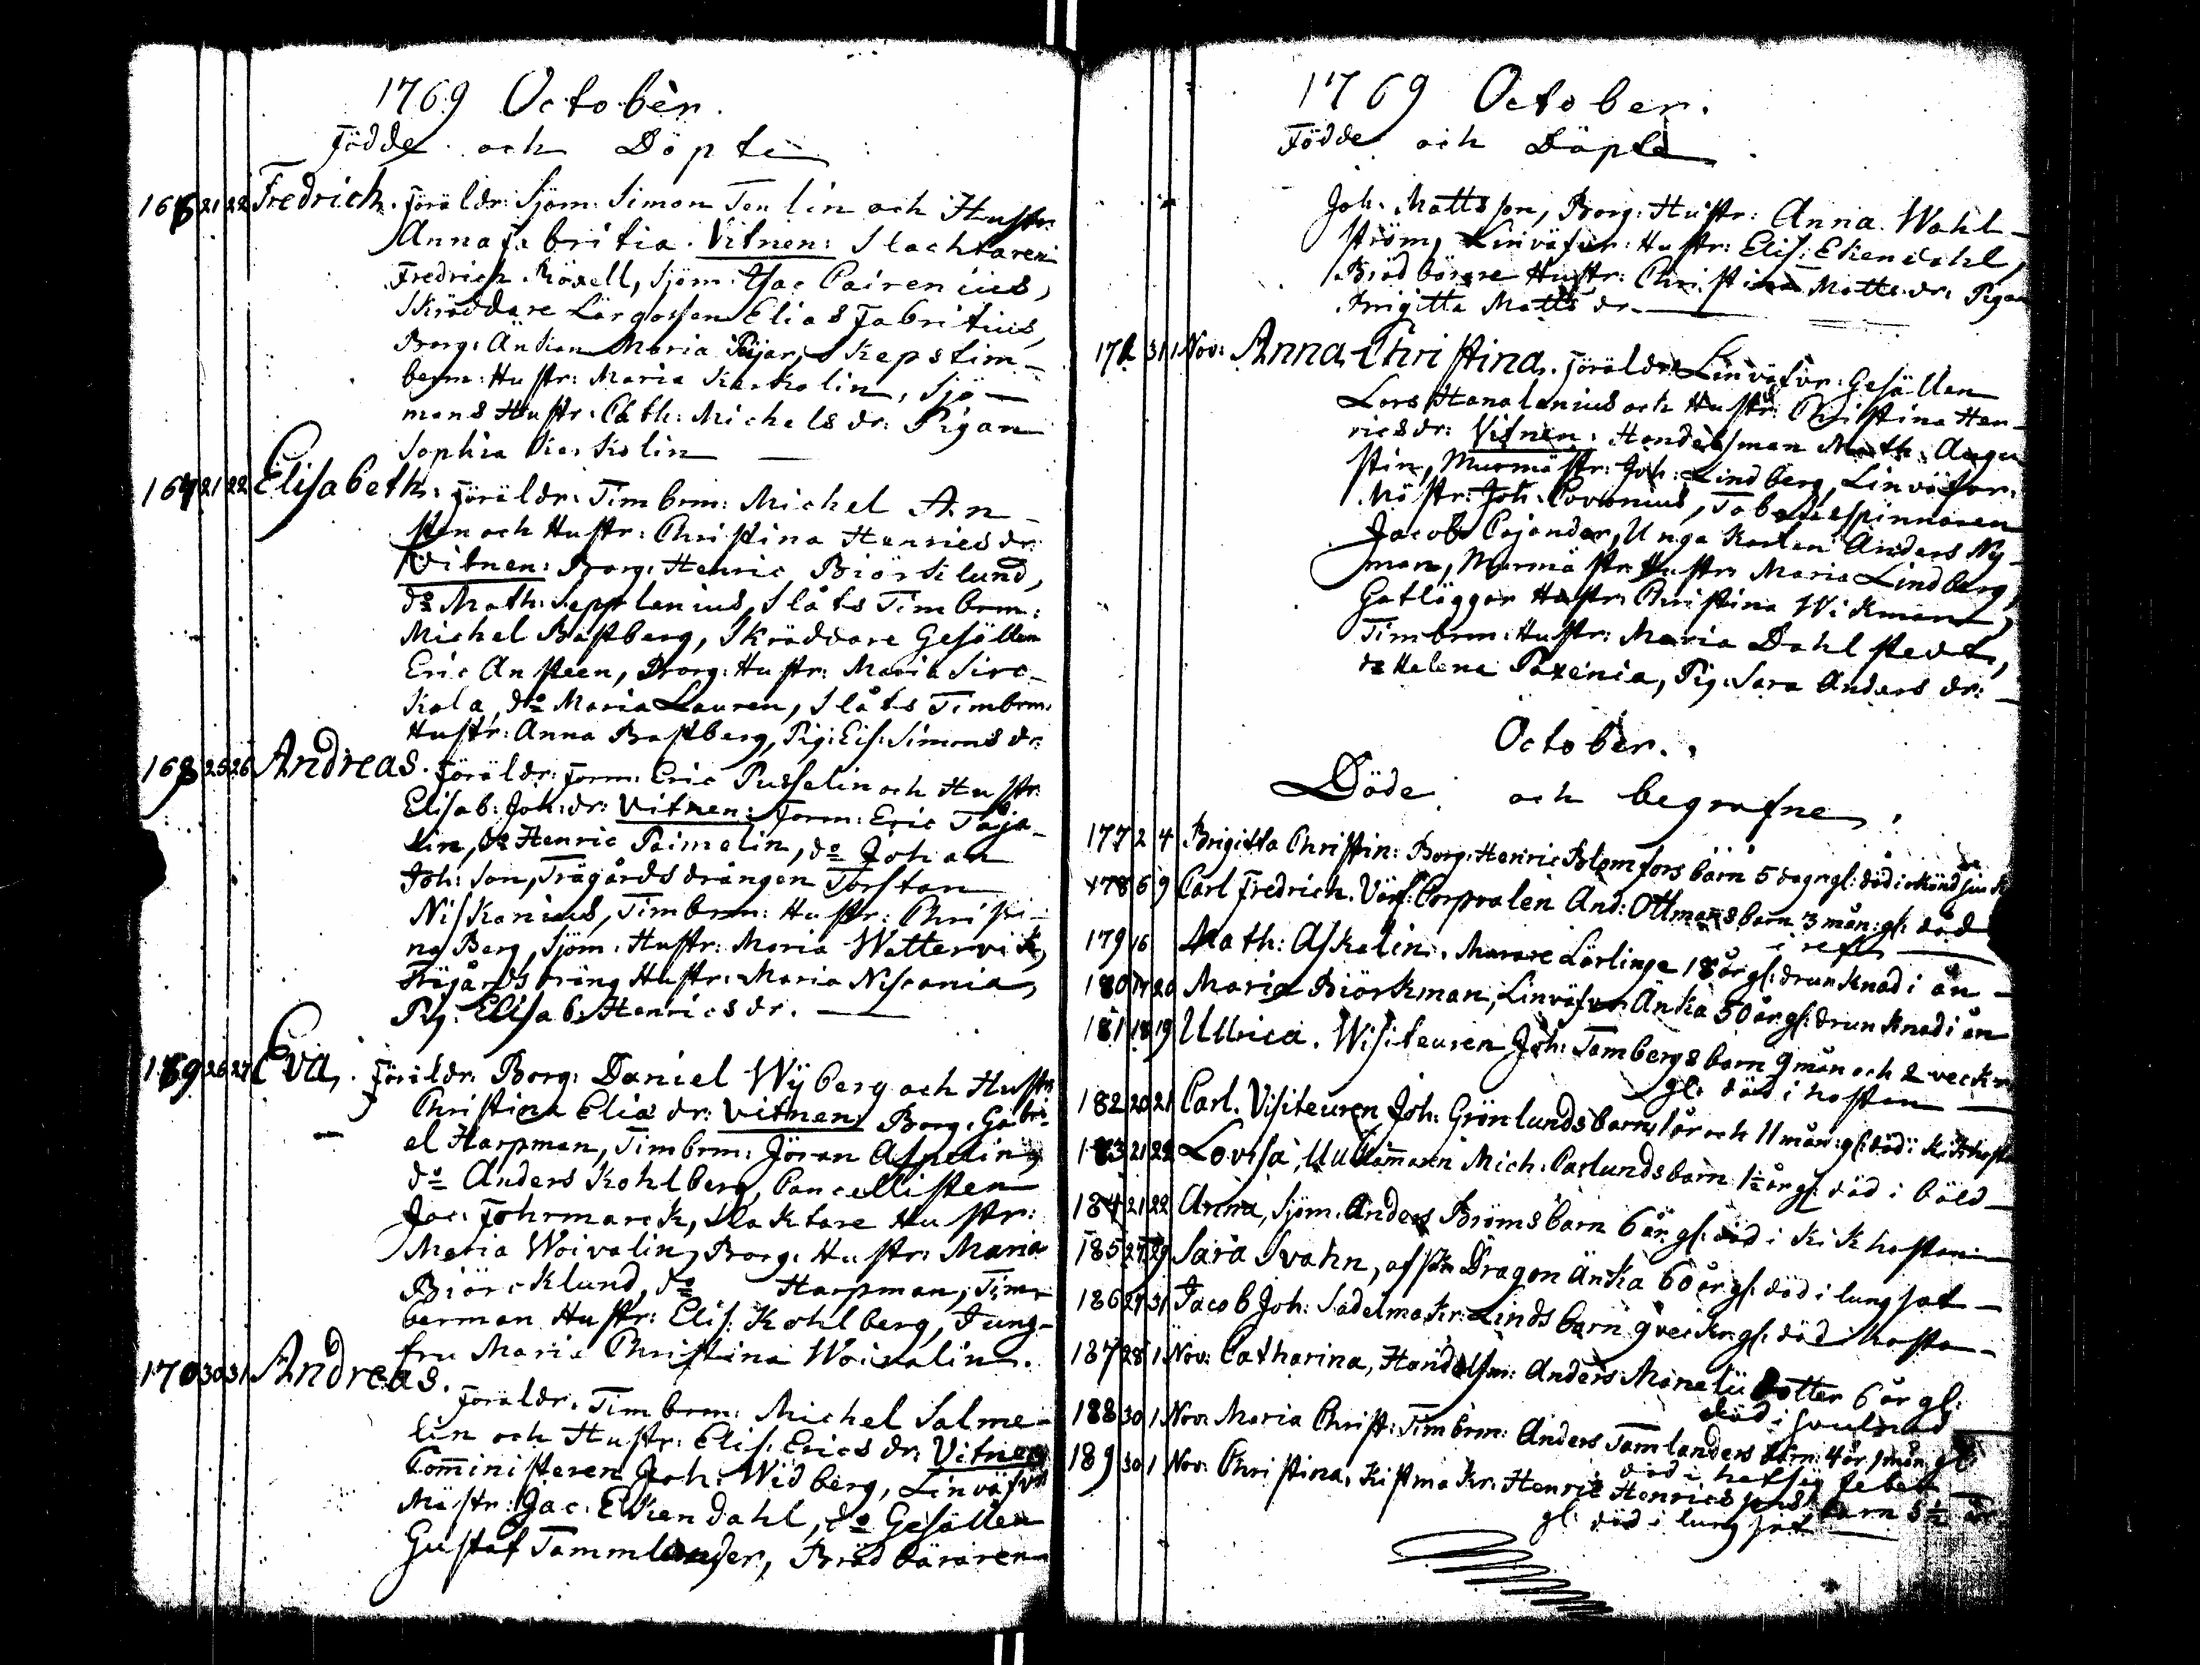 1769 October.
Födde och Döpte
166 21 22 Fredrich. Föräldr: Sjöm: Simon Tenlin och Hustr:
Anna Fabritia. Vitnen: Slachtaren
Fredrich Röxell, Sjöm: Isac Pairenius,
Skräddare Lärgossen Elias Fabritius,
Borg: Änkan Maria Päjar, Skepstim-
berm: Hustr: Maria Karkolin, Sjö-
mans Hustr: Cath: Michels dr: Pigan
Sophia Karkolin
167 21 22 Elisabeth. Föräldr: Timbrm: Michel An-
sten och Hustr: Christina Henrics dr:
Vitnen: Borg: Henric Biörklund,
do Math: Sepplenius, Slåts Timbrm:
Michel Bastberg, Skräddare Gesällen
Eric Ansteen, Borg: Hustr: Maria Sirc-
kola, do Maria Lauren, Slåts Timbrm:
Hustr: Anna Bastberg, Pig: Elis: Simons dr:
168 25 26 Andreas. Föräldr: Form: Eric Pusselin och Hustr:
Elisab: Joh: dr: Vitnen: Form: Eric Taja-
lin, do Henric Paimelin, do Johan
Joh: Son, Trägårds drängen Torstan
Niskanius, Timbrm: Hustr: Christi-
na Berg, Sjöm: Hustr: Maria Wattervik,
Trägårds dräng Hustr: Maria Niscania,
Pig: Elisab: Henrics dr.
169 26 27 Eva. Föräldr: Borg: Daniel Wÿberg och Hustr:
Christina Elias dr: Vitnen: Borg: Gabri-
el Harpman, Timbrm: Jöran Aspeling
do Anders Kohlberg, Cancellisten
Jac: Fohrmarck, Slaktare Hustr:
Maria Woivalin, Borg: Hustr: Maria
Biörcklund, do Harpman, Tim-
berman Hustr: Elis: Kohlberg, Jung-
fru Maria Christina Woivalin.
170 30 31 Andreas. Föräldr: Timbrm: Michel Salme-
lin och Hustr: Elis: Erics dr: Vitnen
Comministeren Joh: Widberg, Linväfvr
Mästr: Jac: Ekendahl, do Gesällen
Gustaf Tammlander, Brödbäraren
1769 October.
Födde och Döpte
Joh: Mattsson, Borg: Hustr: Anna Wahl-
ström, Linväfvr: Hustr: Elis: Ekendahl,
Brödbärare Hustr: Christina Matts dr: Pigan
Brigitta Matts dr.
171 31 1 Nov: Anna Christina. Föräldr: Linväfvr: Gesällen
Lars Hanalenius och Hustr: Christina Hen-
rics dr: Vitnen: Handelsman Math: Augu
stin, Murmästr: Joh: Lindberg, Linväfvar:
Mästr: Joh: Povonius, Tobaksspinnaren
Jacob Cajander, Unga Karlen Anders Ny-
man, Murmästr: Hustr: Maria Lindberg,
Gatläggar Hustr: Christina Wikman,
Timbrm: Hustr: Maria Dahlstedt,
do Helena Paxenia, Pig: Sara Anders dr:
October.
Döde och begrafne.
177 2 4 Brigitta Christin: Borg: Henric Blomfors barn 5 dagr gl: död i okänd siuk
178 6 9 Carl Fredrich. Värf: Corporalen And: Ottmans barn 3 mån: gl: död
i ref
179 16 Math: Askelin. Murare Lärlinge 18 år gl: drunknad i ån
180 17 20 Maria Biörkman, Linväfvar Änka 50 år gl: drunknad i ån
181 18 19 Ullrica. Wisiteuren Joh: Tambergs barn 9 mån och 2 veckr
gl: död i hostan
182 20 21 Carl. Visiteuren Joh: Grönlunds barn 1 år och 11 mån: gl: död i kikhosta
183 21 22 Lovisa, Mich: Carlunds barn 1½ år gl: död i båld
184 21 22 Anna, Sjöm: Anders Broms barn 6 år gl: död i kikhostan
185 27 29 Sara Svahn, afsk: Dragon Änka 60 år gl: död i lungsot
186 27 31 Jacob Joh: Sadelmakr: Linds barn 9 veckr: gl: död i hosta
187 28 1 Nov: Catharina, Handelsm: Anders Manelii dotter 6 år gl:
död i
188 30 1 Nov: Maria Christ: Timbrm: Anders Tamlanders barn: 4 år 1 mån: gl:
död i hetsig feber
189 30 1 Nov: Christina, Kistmakr: Henric Henricssons barn 5½ år
gl: död i lungsot